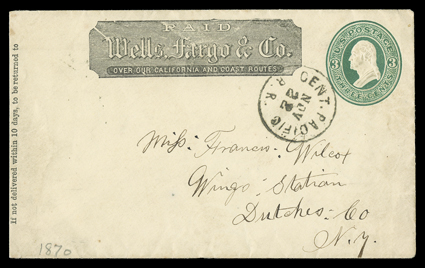 PAID
Wells, Fargo & Co.
OVER OUR CALIFORNIA AND COAST ROUTES.
U.S. POSTAGE
3 3
THREE CENTS
CENT. PACIFIC R. R.
NOV
22
If not delivered within 10 days, to be returned to
Miss. Francis. Wilcox
Wings-Station
Dutches-Co
N.Y.
1870